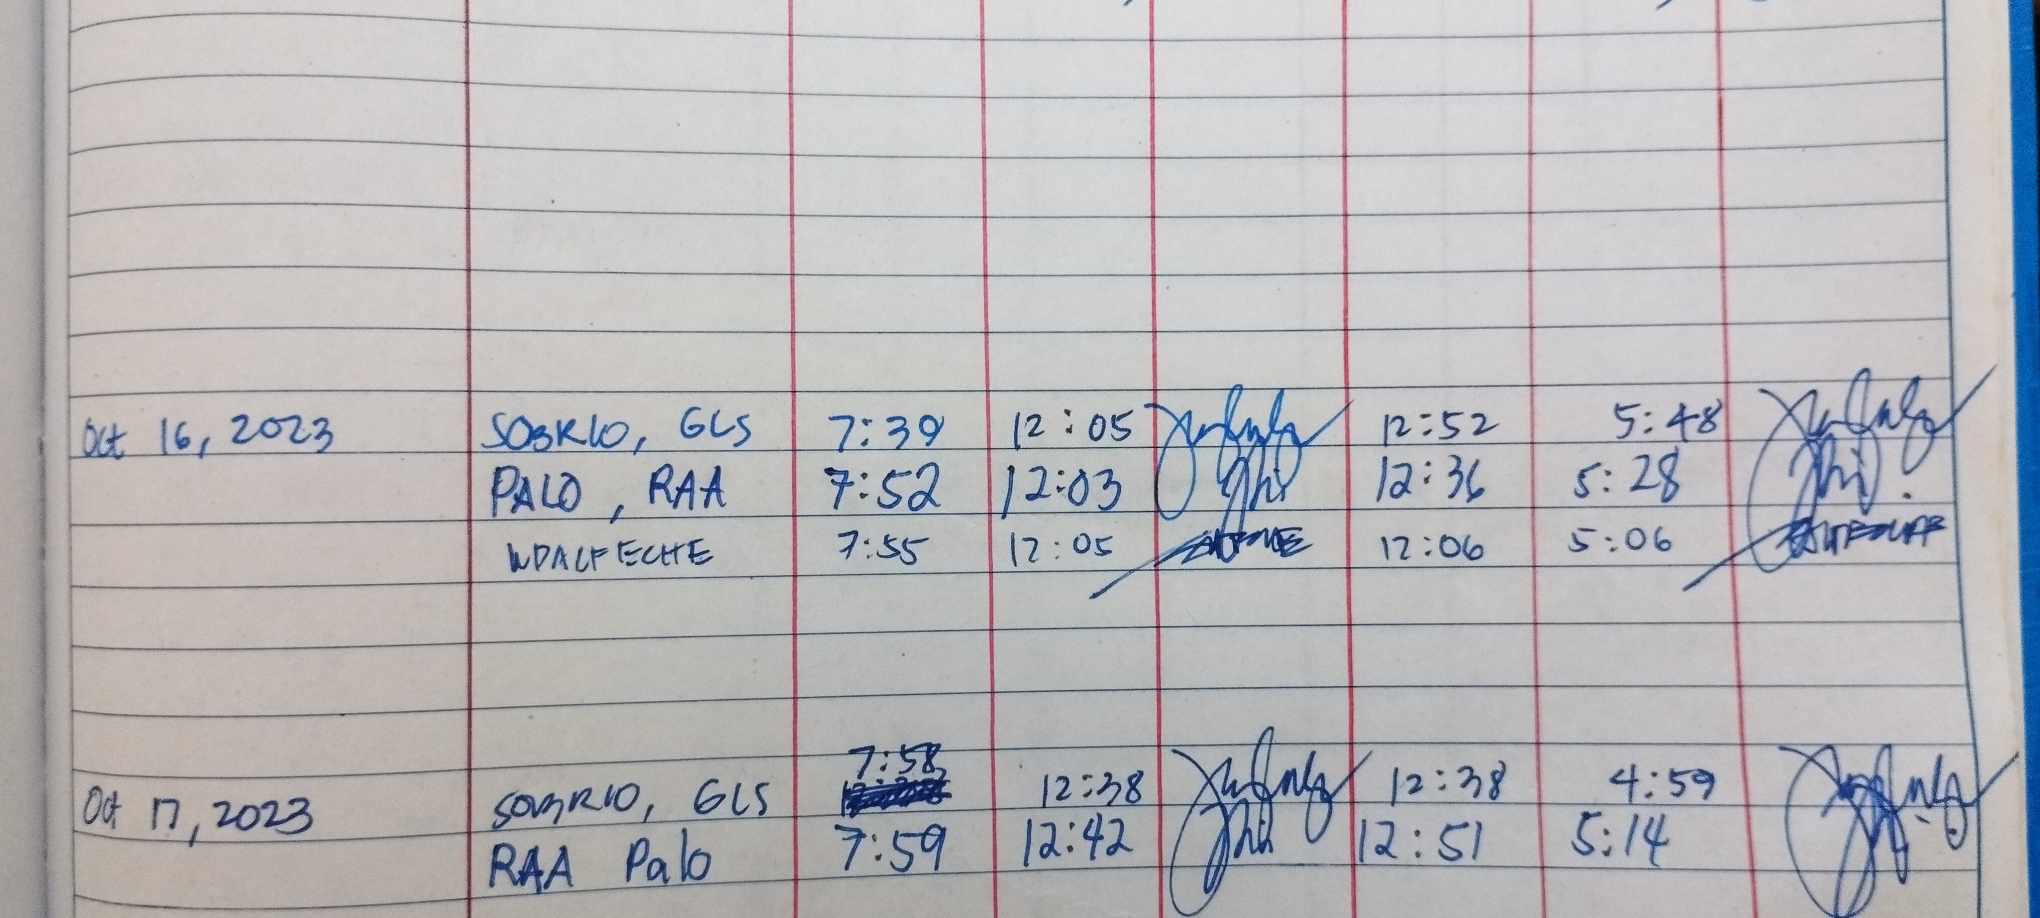 Oct 16, 2023 SOBRIO, GLS 7:39 12:05 12:52 5:48
PALO, RAA 7:52 12:03 12:36 5:28
WDALFECHE 7:55 12:05 12:06 5:06
7:58
Oct 17, 2023 SOBRIO, GLS 12:38 12:38 4:59
RAA Palo 7:59 12:42 12:51 5:14